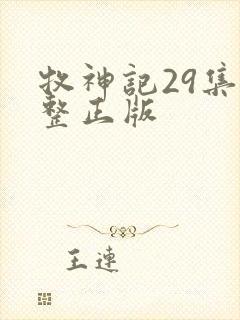 牧神记29集
整正版
王连